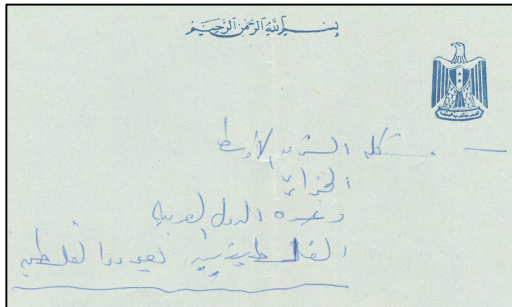 بسم الله الرحمن الرحيم
— مشكلة الشرق الأوسط
الجزائر
وحده الدول العربيه
الفلسطينيين يعودوا لفلسطين